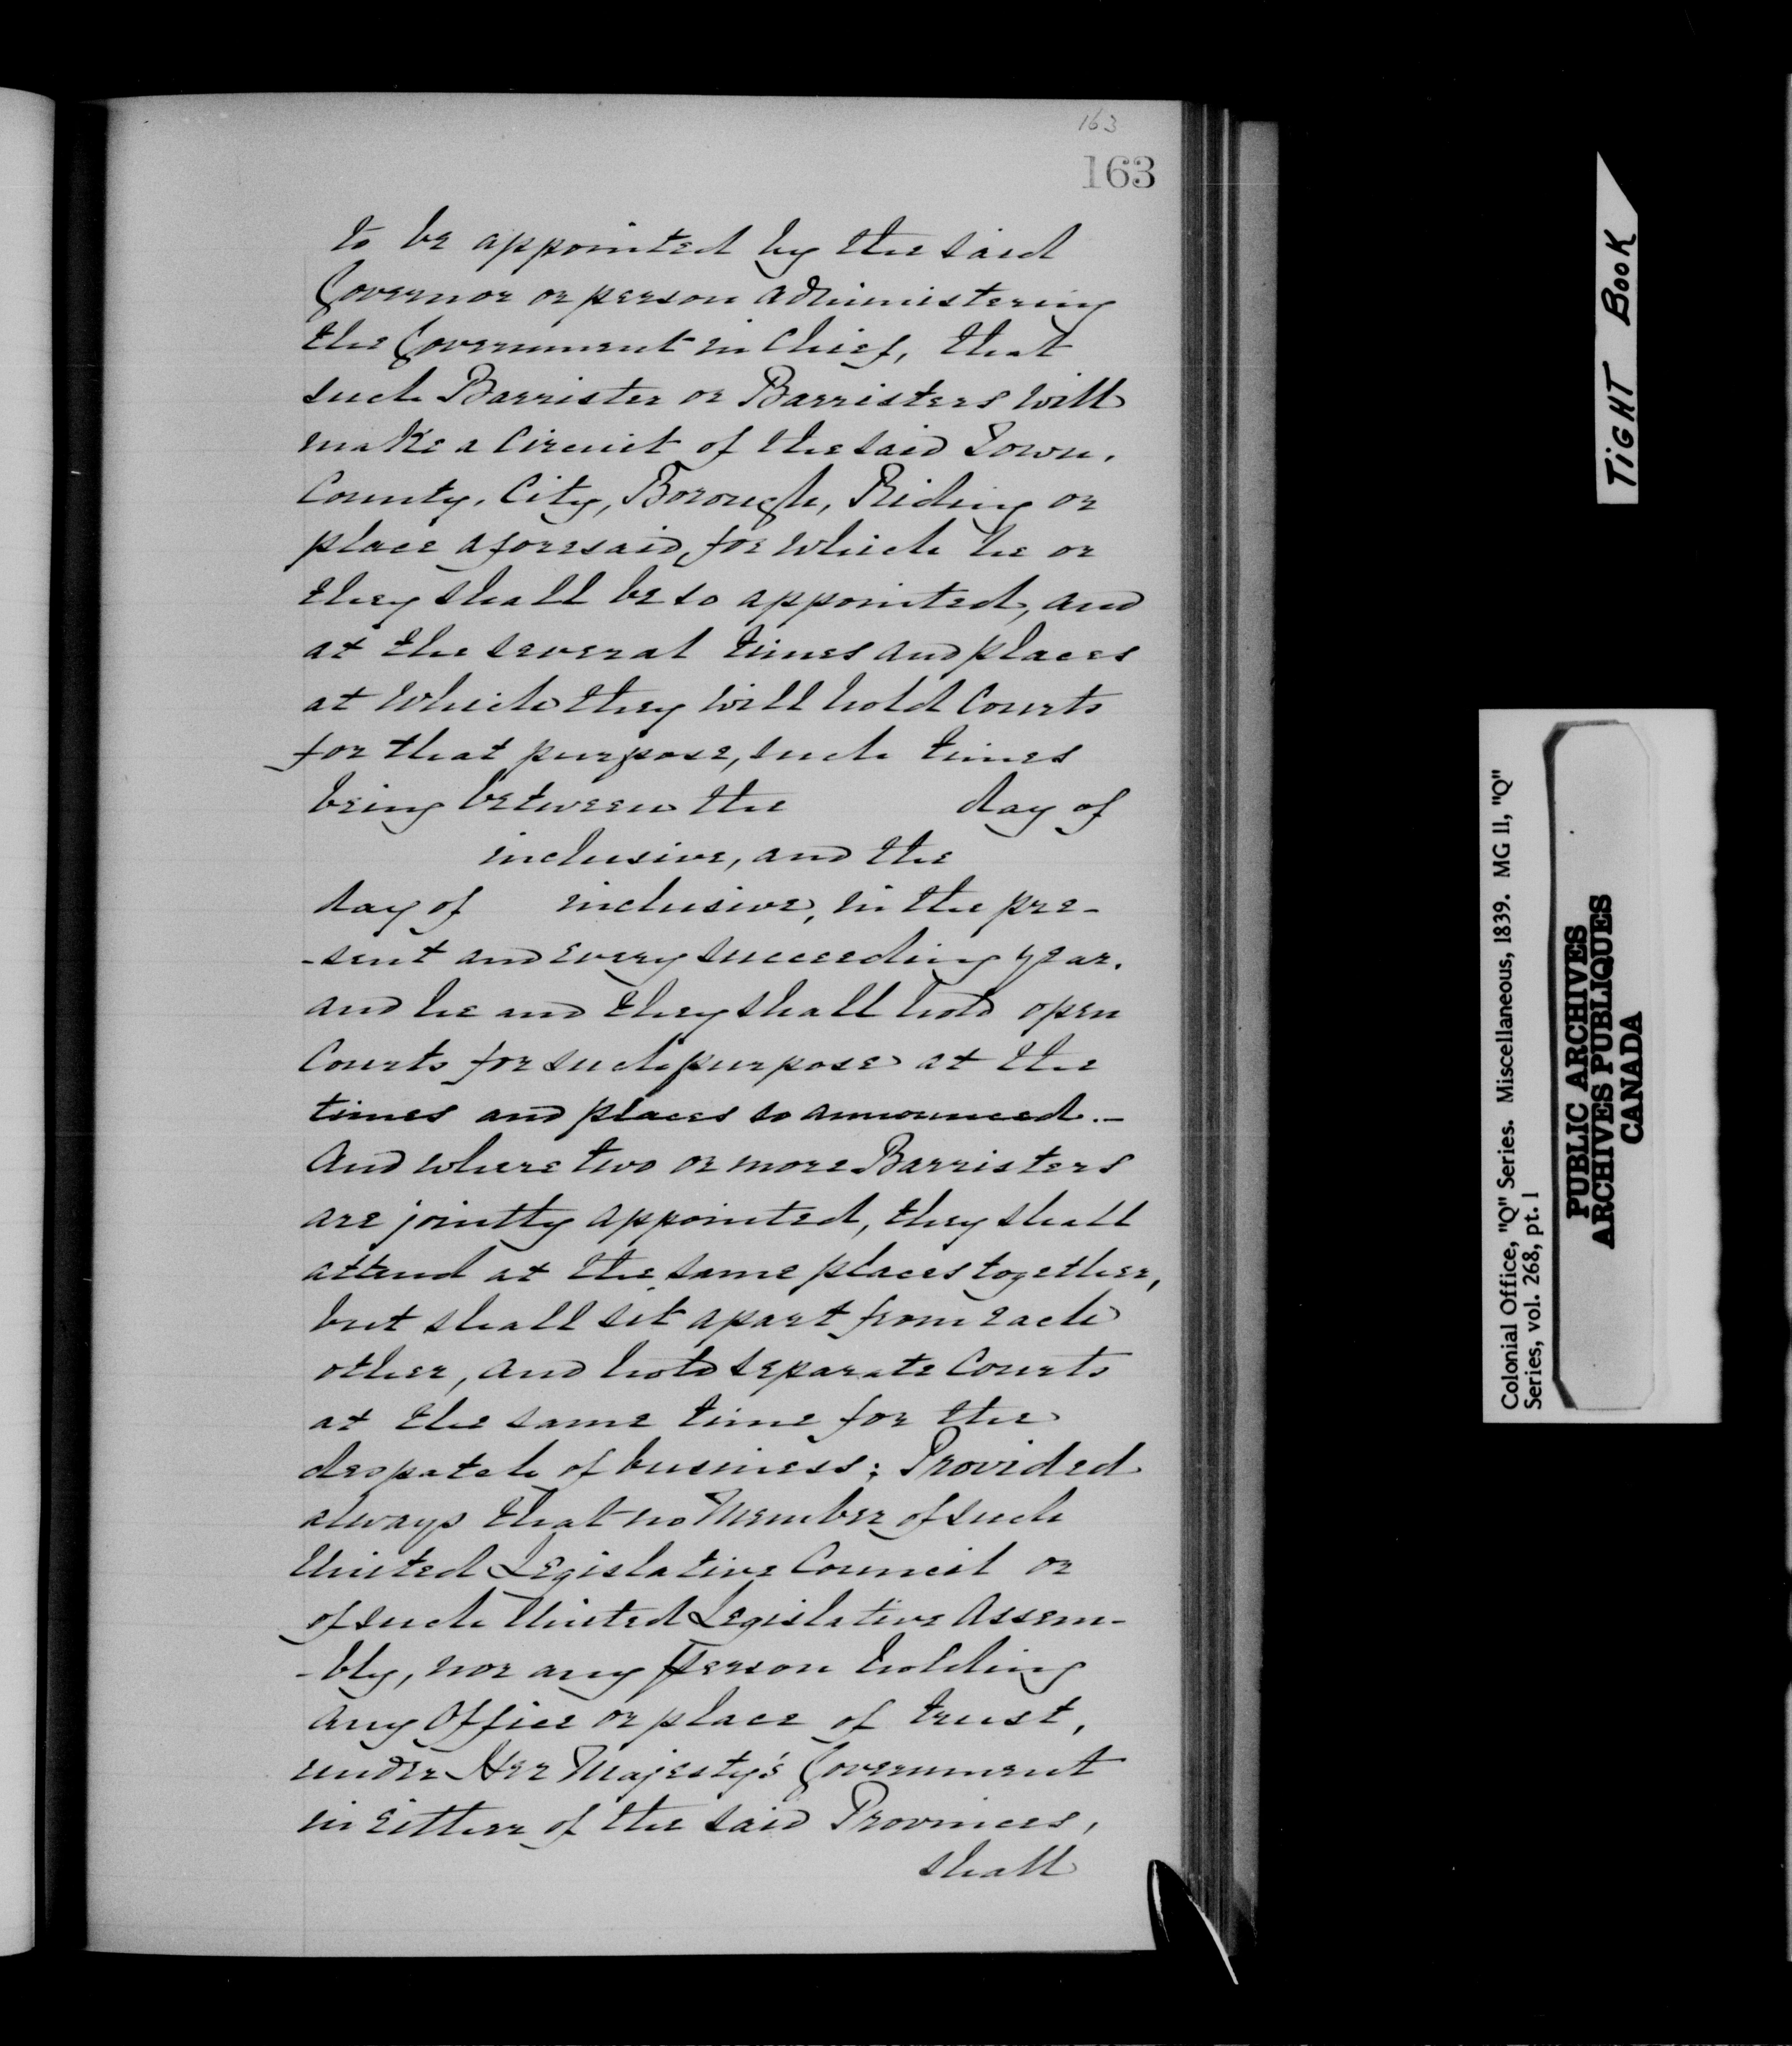 163
163
to be appointed by the said
Governor or person administering
the Government in Chief, that
such Barrister or Barristers will
make a Circuit of the said Town,
County, City, Borough, Riding or
place aforesaid, for which he or
they shall be so appointed, and
at the several times and places
at which they will hold Courts
for that purpose, such times
being between the day of
inclusive, and the
day of inclusive, in the pre-
-sent and every succeeding year,
and he and they shall hold open
Courts for such purpose at the
times and places so announced.—
And where two or more Barristers
are jointly appointed, they shall
attend at the same places together,
but shall sit apart from each
other, and hold separate Courts
at the same time for the
despatch of business; Provided
always that no Member of such
United Legislative Council or
of such United Legislative Assem-
-bly, nor any person holding
any Office or place of trust,
under Her Majesty's Government
in either of the said Provinces,
shall
TIGHT BOOK
Colonial Office, "Q" Series. Miscellaneous, 1839. MG 11, "Q"
Series, vol. 268, pt. 1
PUBLIC ARCHIVES
ARCHIVES PUBLIQUES
CANADA